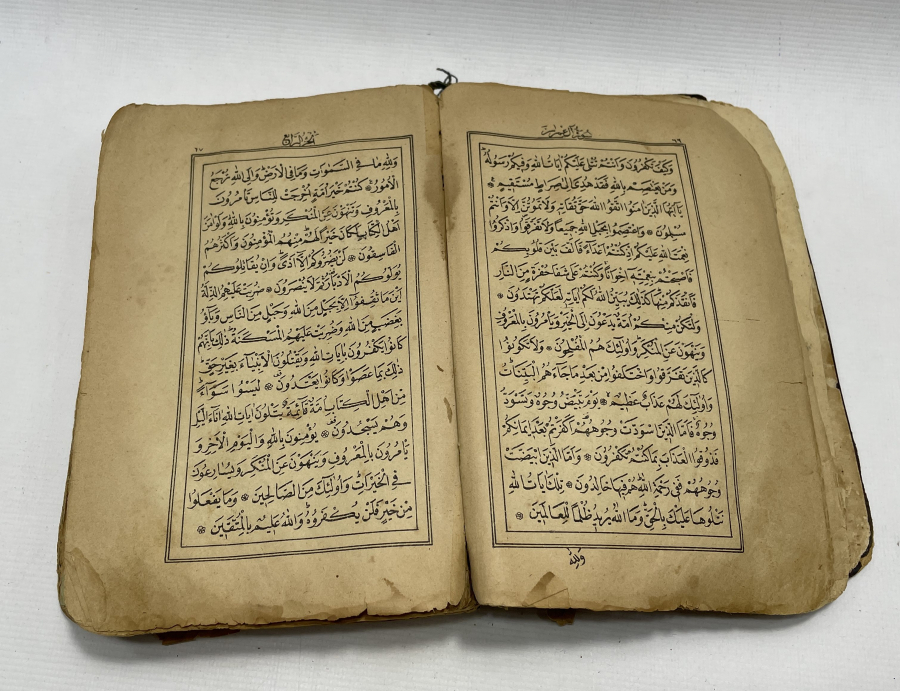 سورة آل عمران ٦٦
وَكَيْفَ تَكْفُرُونَ وَاَنْتُمْ تُتْلٰى عَلَيْكُمْ اٰيَاتُ اللهِ وَفِيكُمْ رَسُولُهُ
وَمَنْ يَعْتَصِمْ بِاللهِ فَقَدْ هُدِىَ اِلٰى صِرَاطٍ مُسْتَقِيمٍ
يَآ اَيُّهَا الَّذِينَ اٰمَنُوا اتَّقُوا اللهَ حَقَّ تُقَاتِهِ وَلَا تَمُوتُنَّ اِلَّا وَاَنْتُمْ
مُسْلِمُونَ وَاعْتَصِمُوا بِحَبْلِ اللهِ جَمِيعًا وَلَا تَفَرَّقُوا وَاذْكُرُوا
نِعْمَتَ اللهِ عَلَيْكُمْ اِذْ كُنْتُمْ اَعْدَآءً فَاَلَّفَ بَيْنَ قُلُوبِكُمْ
فَاَصْبَحْتُمْ بِنِعْمَتِهِ اِخْوَانًا وَكُنْتُمْ عَلٰى شَفَا حُفْرَةٍ مِنَ النَّارِ
فَاَنْقَذَكُمْ مِنْهَا كَذٰلِكَ يُبَيِّنُ اللهُ لَكُمْ اٰيَاتِهِ لَعَلَّكُمْ تَهْتَدُونَ
وَلْتَكُنْ مِنْكُمْ اُمَّةٌ يَدْعُونَ اِلَى الْخَيْرِ وَيَأْمُرُونَ بِالْمَعْرُوفِ
وَيَنْهَوْنَ عَنِ الْمُنْكَرِ وَاُولٰئِكَ هُمُ الْمُفْلِحُونَ وَلَا تَكُونُوا
كَالَّذِينَ تَفَرَّقُوا وَاخْتَلَفُوا مِنْ بَعْدِ مَا جَآءَهُمُ الْبَيِّنَاتُ
وَاُولٰئِكَ لَهُمْ عَذَابٌ عَظِيمٌ يَوْمَ تَبْيَضُّ وُجُوهٌ وَتَسْوَدُّ
وُجُوهٌ فَاَمَّا الَّذِينَ اسْوَدَّتْ وُجُوهُهُمْ اَكَفَرْتُمْ بَعْدَ اِيمَانِكُمْ
فَذُوقُوا الْعَذَابَ بِمَا كُنْتُمْ تَكْفُرُونَ وَاَمَّا الَّذِينَ ابْيَضَّتْ
وُجُوهُهُمْ فَفِى رَحْمَةِ اللهِ هُمْ فِيهَا خَالِدُونَ تِلْكَ اٰيَاتُ اللهِ
نَتْلُوهَا عَلَيْكَ بِالْحَقِّ وَمَا اللهُ يُرِيدُ ظُلْمًا لِلْعَالَمِينَ
وَلِلّٰهِ
الجزء الرابع ٦٧
وَلِلّٰهِ مَا فِى السَّمٰوَاتِ وَمَا فِى الْاَرْضِ وَاِلَى اللهِ تُرْجَعُ
الْاُمُورُ كُنْتُمْ خَيْرَ اُمَّةٍ اُخْرِجَتْ لِلنَّاسِ تَأْمُرُونَ
بِالْمَعْرُوفِ وَتَنْهَوْنَ عَنِ الْمُنْكَرِ وَتُؤْمِنُونَ بِاللهِ وَلَوْ اٰمَنَ
اَهْلُ الْكِتَابِ لَكَانَ خَيْرًا لَهُمْ مِنْهُمُ الْمُؤْمِنُونَ وَاَكْثَرُهُمُ
الْفَاسِقُونَ لَنْ يَضُرُّوكُمْ اِلَّا اَذًى وَاِنْ يُقَاتِلُوكُمْ
يُوَلُّوكُمُ الْاَدْبَارَ ثُمَّ لَا يُنْصَرُونَ ضُرِبَتْ عَلَيْهِمُ الذِّلَّةُ
اَيْنَ مَا ثُقِفُوا اِلَّا بِحَبْلٍ مِنَ اللهِ وَحَبْلٍ مِنَ النَّاسِ وَبَآؤُ
بِغَضَبٍ مِنَ اللهِ وَضُرِبَتْ عَلَيْهِمُ الْمَسْكَنَةُ ذٰلِكَ بِاَنَّهُمْ
كَانُوا يَكْفُرُونَ بِاٰيَاتِ اللهِ وَيَقْتُلُونَ الْاَنْبِيَآءَ بِغَيْرِ حَقٍّ
ذٰلِكَ بِمَا عَصَوْا وَكَانُوا يَعْتَدُونَ لَيْسُوا سَوَآءً
مِنْ اَهْلِ الْكِتَابِ اُمَّةٌ قَآئِمَةٌ يَتْلُونَ اٰيَاتِ اللهِ اٰنَآءَ الَّيْلِ
وَهُمْ يَسْجُدُونَ يُؤْمِنُونَ بِاللهِ وَالْيَوْمِ الْاٰخِرِ وَ
يَأْمُرُونَ بِالْمَعْرُوفِ وَيَنْهَوْنَ عَنِ الْمُنْكَرِ وَيُسَارِعُونَ
فِى الْخَيْرَاتِ وَاُولٰئِكَ مِنَ الصَّالِحِينَ وَمَا يَفْعَلُوا
مِنْ خَيْرٍ فَلَنْ يُكْفَرُوهُ وَاللهُ عَلِيمٌ بِالْمُتَّقِينَ